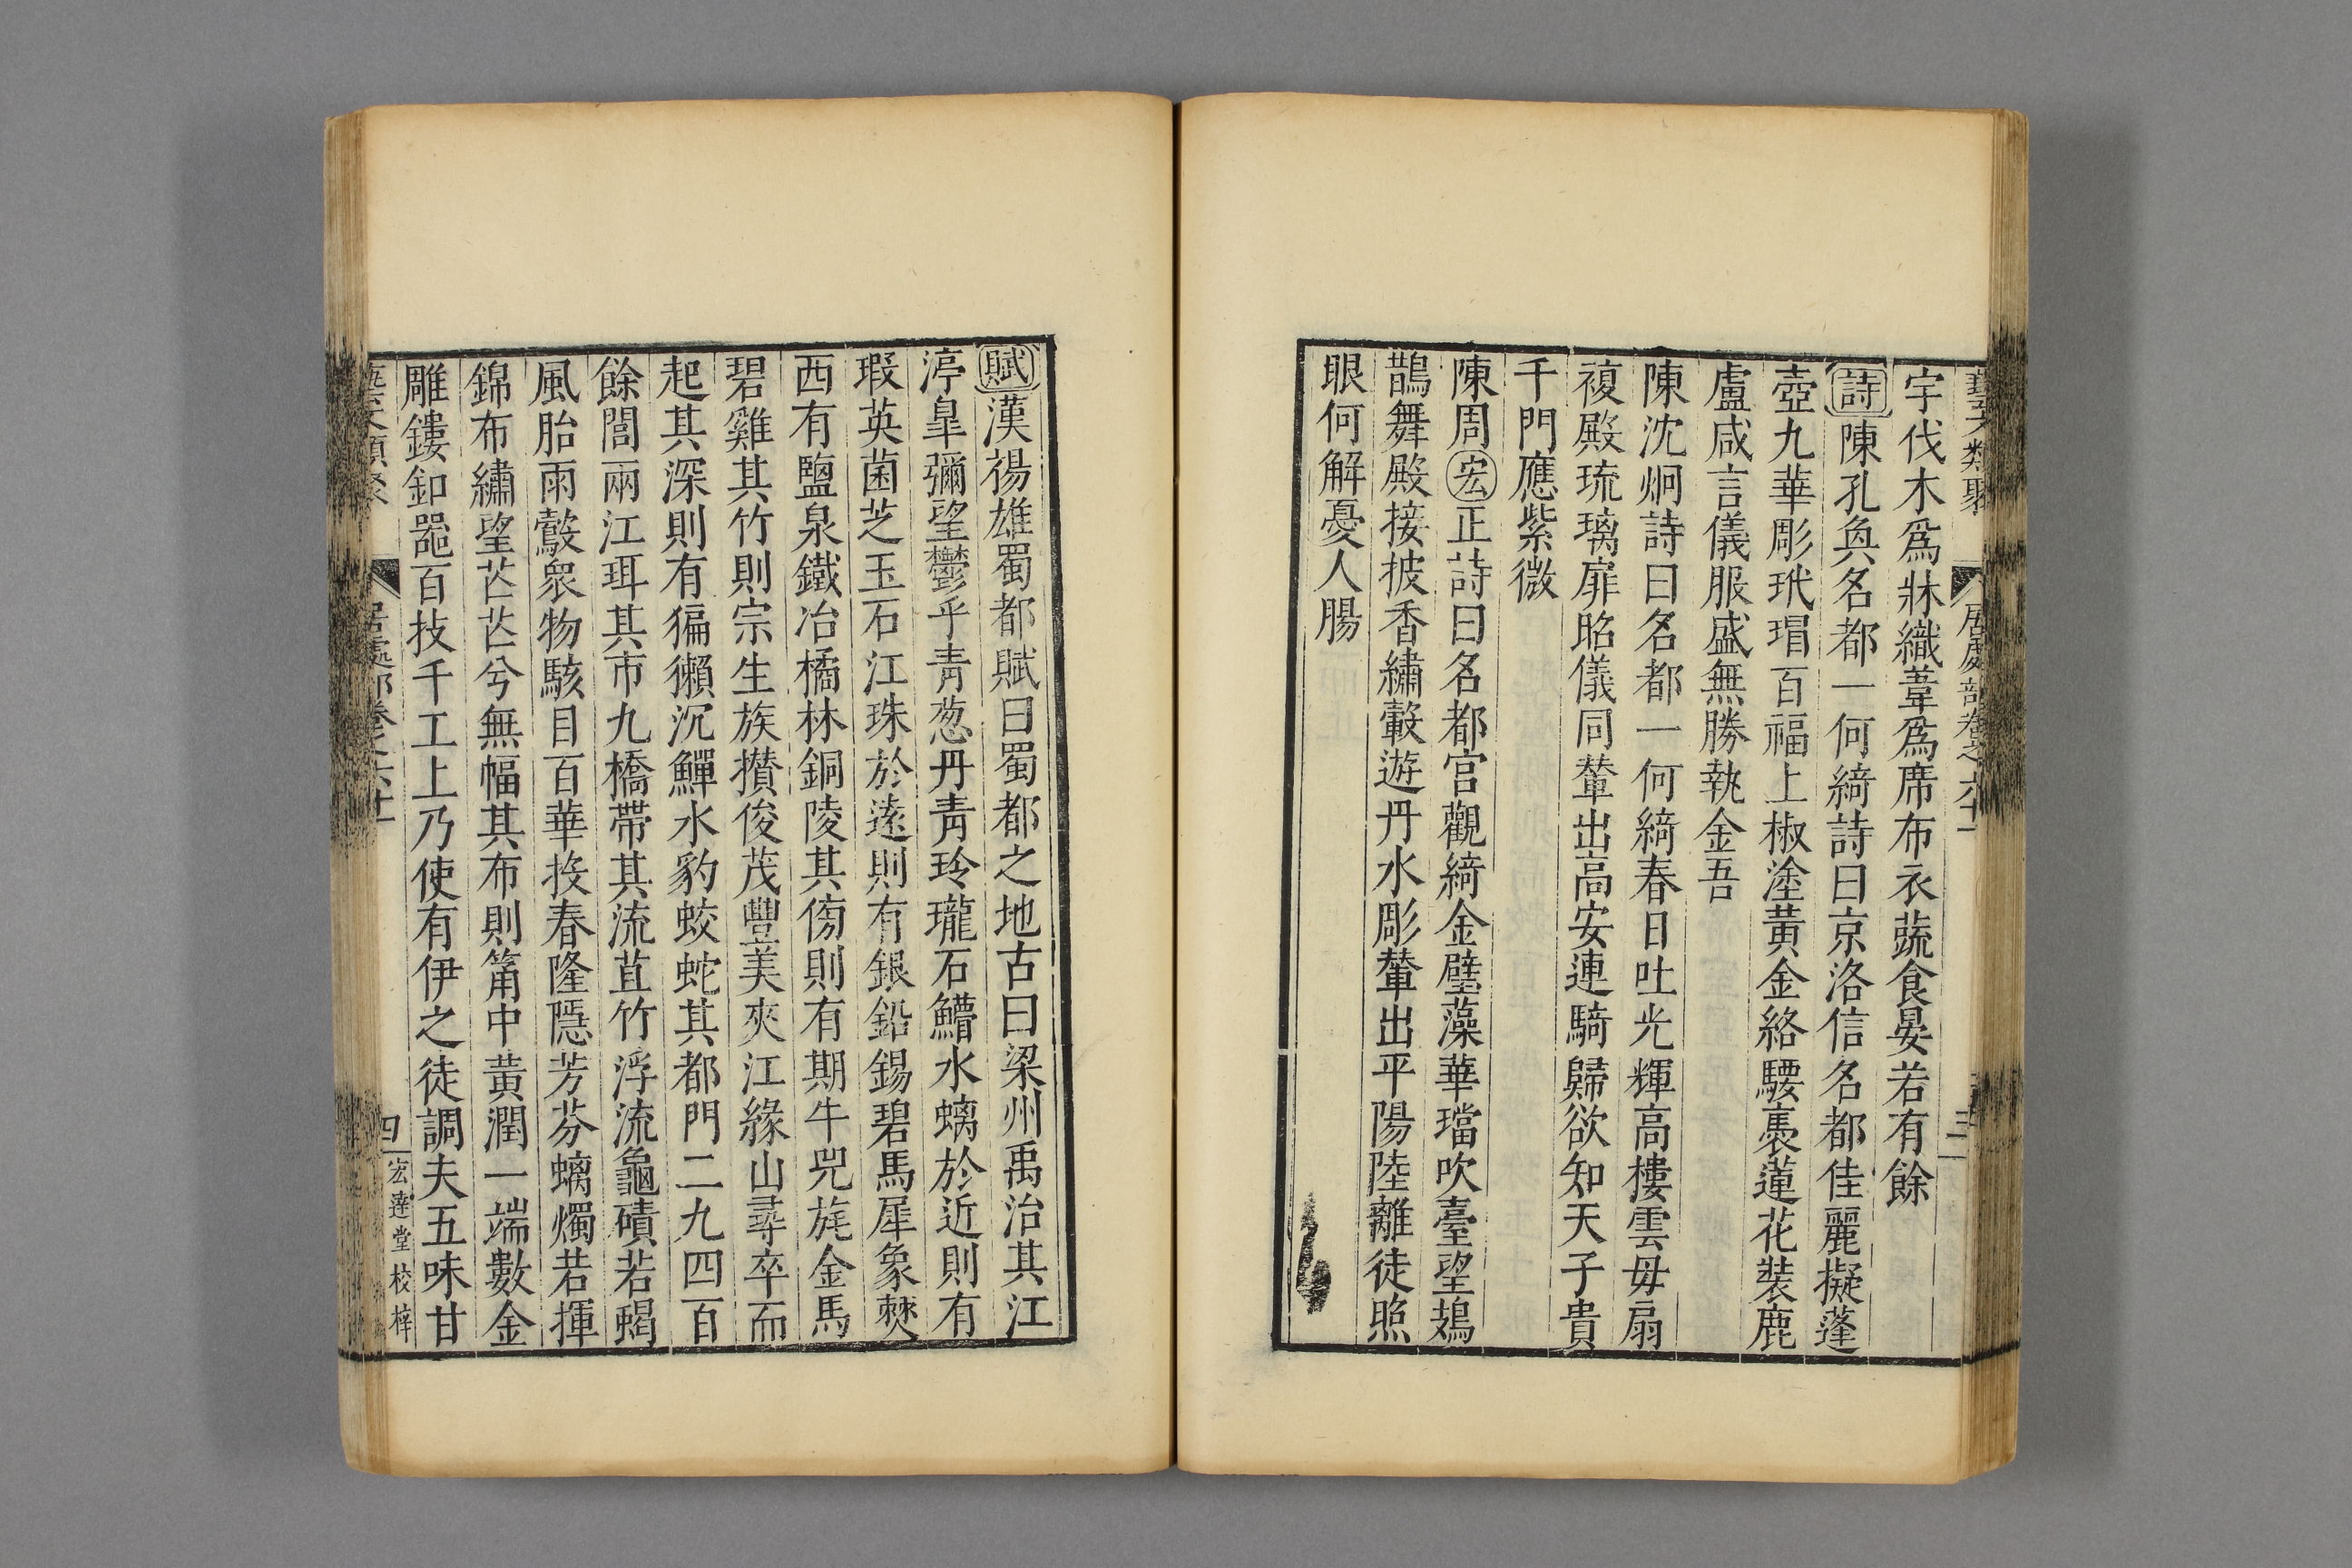 藝文類聚 居處部卷之六十一 三
宇伐木爲牀織葦爲席布衣蔬食晏若有餘
詩陳孔奐名都一何綺詩曰京洛信名都佳麗擬蓬
壺九華彫玳瑁百福上椒塗黃金絡騕褭蓮花裝鹿
盧咸言儀服盛無勝執金吾
陳沈炯詩曰名都一何綺春日吐光輝高樓雲毋扇
複殿琉璃扉昭儀同輦出高安連騎歸欲知天子貴
千門應紫微
陳周宏正詩曰名都宫觀綺金壁藻華璫吹臺望鳷
鵲舞殿接披香繡轂遊丹水彫輦出平陽陸離徒照
眼何解憂人腸
賦漢揚雄蜀都賦曰蜀都之地古曰梁州禹治其江
渟臯彌望鬱乎青葱丹青玲瓏石鱛水螭於近則有
瑕英菌芝玉石江珠於遠則有銀鉛錫碧馬犀象僰
西有鹽泉鐵冶橘林銅陵其傍則有期牛兕旄金馬
碧雞其竹則宗生族攢俊茂豐美夾江緣山尋卒而
起其深則有猵獺沉鱓水豹蛟蛇其都門二九四百
餘閭兩江珥其市九橋帶其流苴竹浮流龜磧若蝎
風胎雨鷇衆物駭目百華投春隆隱芳芬螭燭若揮
錦布繡望芒芒兮無幅其布則筩中黃潤一端數金
雕鏤釦噐百技千工上乃使有伊之徒調夫五味甘
藝文類聚 居處部卷之六十一 四 宏達堂校梓